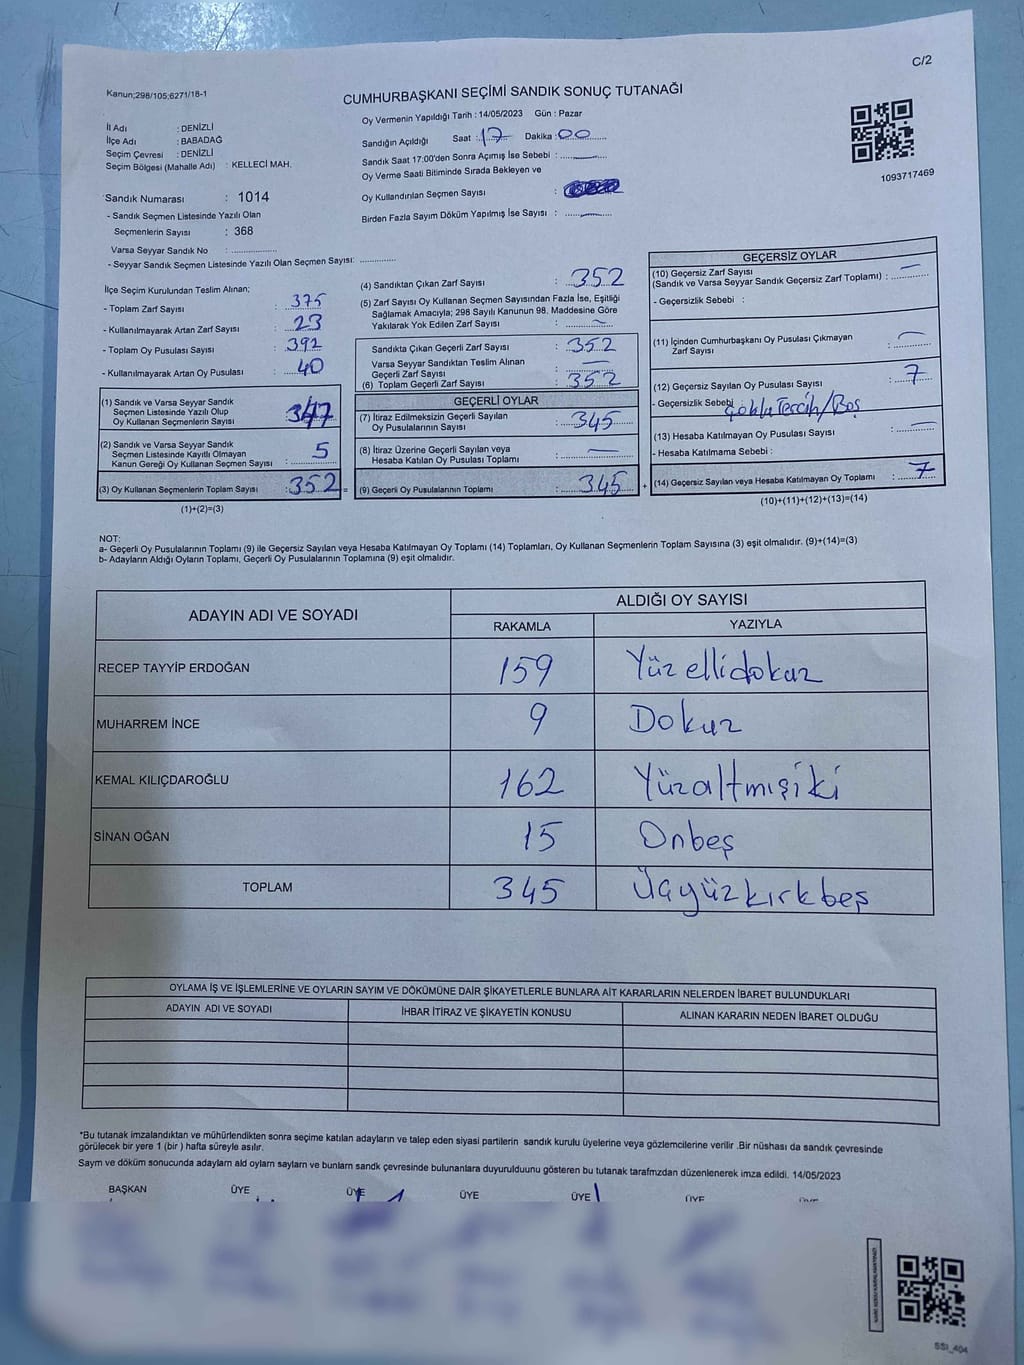 C/2
Kanun;298/105;6271/18-1
CUMHURBAŞKANI SEÇİMİ SANDIK SONUÇ TUTANAĞI
İl Adı : DENİZLİ
İlçe Adı : BABADAĞ
Seçim Çevresi : DENİZLİ
Seçim Bölgesi (Mahalle Adı) : KELLECİ MAH.
Oy Vermenin Yapıldığı Tarih : 14/05/2023 Gün : Pazar
Sandığın Açıldığı Saat : 17 Dakika : 00
Sandık Saat 17:00'den Sonra Açımış İse Sebebi :
Oy Verme Saati Bitiminde Sırada Bekleyen ve
Oy Kullandırılan Seçmen Sayısı :
Birden Fazla Sayım Döküm Yapılmış İse Sayısı :
1093717469
Sandık Numarası : 1014
- Sandık Seçmen Listesinde Yazılı Olan
Seçmenlerin Sayısı : 368
Varsa Seyyar Sandık No :
- Seyyar Sandık Seçmen Listesinde Yazılı Olan Seçmen Sayısı:
İlçe Seçim Kurulundan Teslim Alınan;
- Toplam Zarf Sayısı : 375
- Kullanılmayarak Artan Zarf Sayısı : 23
- Toplam Oy Pusulası Sayısı : 392
- Kullanılmayarak Artan Oy Pusulası : 40
(1) Sandık ve Varsa Seyyar Sandık
Seçmen Listesinde Yazılı Olup
Oy Kullanan Seçmenlerin Sayısı : 347
(2) Sandık ve Varsa Seyyar Sandık
Seçmen Listesinde Kayıtlı Olmayan
Kanun Gereği Oy Kullanan Seçmen Sayısı : 5
(3) Oy Kullanan Seçmenlerin Toplam Sayısı : 352 =
(1)+(2)=(3)
(4) Sandıktan Çıkan Zarf Sayısı : 352
(5) Zarf Sayısı Oy Kullanan Seçmen Sayısından Fazla İse, Eşitliği
Sağlamak Amacıyla; 298 Sayılı Kanunun 98. Maddesine Göre
Yakılarak Yok Edilen Zarf Sayısı :
Sandıkta Çıkan Geçerli Zarf Sayısı : 352
Varsa Seyyar Sandıktan Teslim Alınan
Geçerli Zarf Sayısı :
(6) Toplam Geçerli Zarf Sayısı : 352
GEÇERLİ OYLAR
(7) İtiraz Edilmeksizin Geçerli Sayılan
Oy Pusulalarının Sayısı : 345
(8) İtiraz Üzerine Geçerli Sayılan veya
Hesaba Katılan Oy Pusulası Toplamı :
(9) Geçerli Oy Pusulalarının Toplamı : 345 +
GEÇERSİZ OYLAR
(10) Geçersiz Zarf Sayısı
(Sandık ve Varsa Seyyar Sandık Geçersiz Zarf Toplamı) :
- Geçersizlik Sebebi :
(11) İçinden Cumhurbaşkanı Oy Pusulası Çıkmayan
Zarf Sayısı :
(12) Geçersiz Sayılan Oy Pusulası Sayısı : 7
- Geçersizlik Sebebi : Çoklu Tercih/Boş
(13) Hesaba Katılmayan Oy Pusulası Sayısı :
- Hesaba Katılmama Sebebi :
(14) Geçersiz Sayılan veya Hesaba Katılmayan Oy Toplamı : 7
(10)+(11)+(12)+(13)=(14)
NOT:
a- Geçerli Oy Pusulalarının Toplamı (9) ile Geçersiz Sayılan veya Hesaba Katılmayan Oy Toplamı (14) Toplamları, Oy Kullanan Seçmenlerin Toplam Sayısına (3) eşit olmalıdır. (9)+(14)=(3)
b- Adayların Aldığı Oyların Toplamı, Geçerli Oy Pusulalarının Toplamına (9) eşit olmalıdır.
ADAYIN ADI VE SOYADI ALDIĞI OY SAYISI
RAKAMLA YAZIYLA
RECEP TAYYİP ERDOĞAN 159 Yüzellidokuz
MUHARREM İNCE 9 Dokuz
KEMAL KILIÇDAROĞLU 162 Yüzaltmışiki
SİNAN OĞAN 15 Onbeş
TOPLAM 345 Üçyüzkırkbeş
OYLAMA İŞ VE İŞLEMLERİNE VE OYLARIN SAYIM VE DÖKÜMÜNE DAİR ŞİKAYETLERLE BUNLARA AİT KARARLARIN NELERDEN İBARET BULUNDUKLARI
ADAYIN ADI VE SOYADI İHBAR İTİRAZ VE ŞİKAYETİN KONUSU ALINAN KARARIN NEDEN İBARET OLDUĞU
*Bu tutanak imzalandıktan ve mühürlendikten sonra seçime katılan adayların ve talep eden siyasi partilerin sandık kurulu üyelerine veya gözlemcilerine verilir .Bir nüshası da sandık çevresinde
görülecek bir yere 1 (bir ) hafta süreyle asılır.
Sayım ve döküm sonucunda adayların ald oyların sayları ve bunların sandk çevresinde bulunanlara duyurulduunu gösteren bu tutanak tarafmzdan düzenlenerek imza edildi. 14/05/2023
BAŞKAN ÜYE ÜYE ÜYE ÜYE ÜYE ÜYE
SSI_404